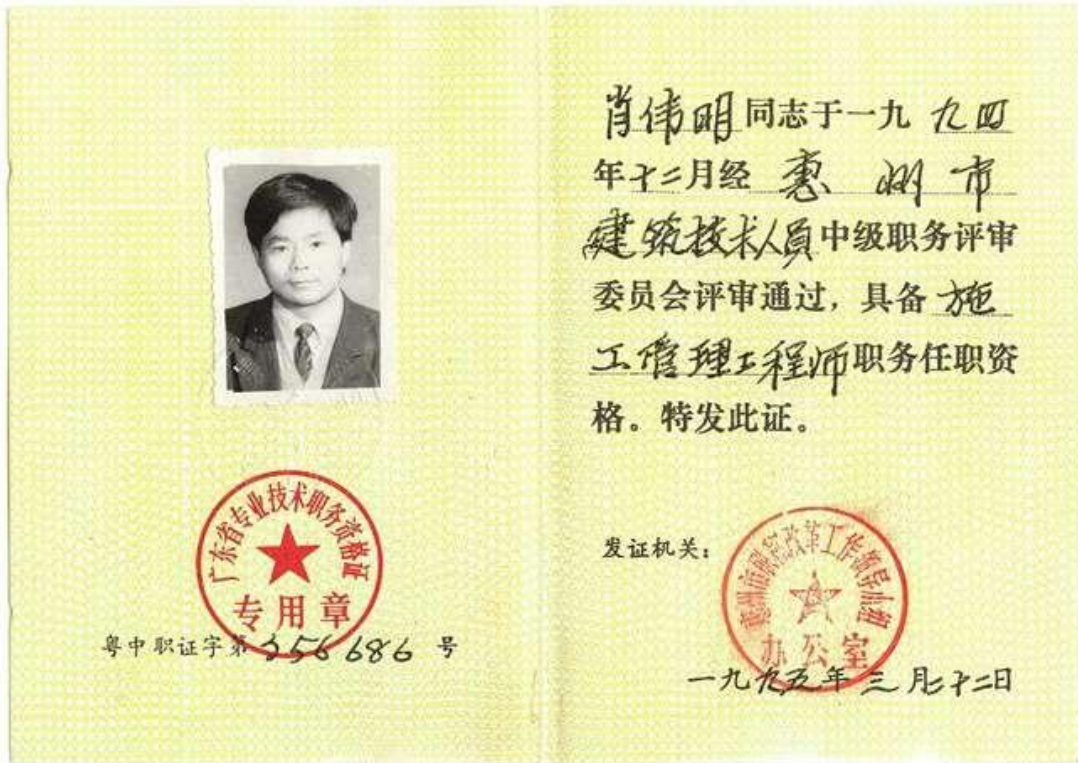 广东省专业技术职务资格证
专用章
粤中职证字第356686号
肖伟明同志于一九九四
年十二月经惠州市
建筑技术人員中级职务评审
委员会评审通过，具备施
工管理工程师职务任职资
格。特发此证。
发证机关：
惠州市职称改革工作领导小组
办公室
一九九五年三月二十二日